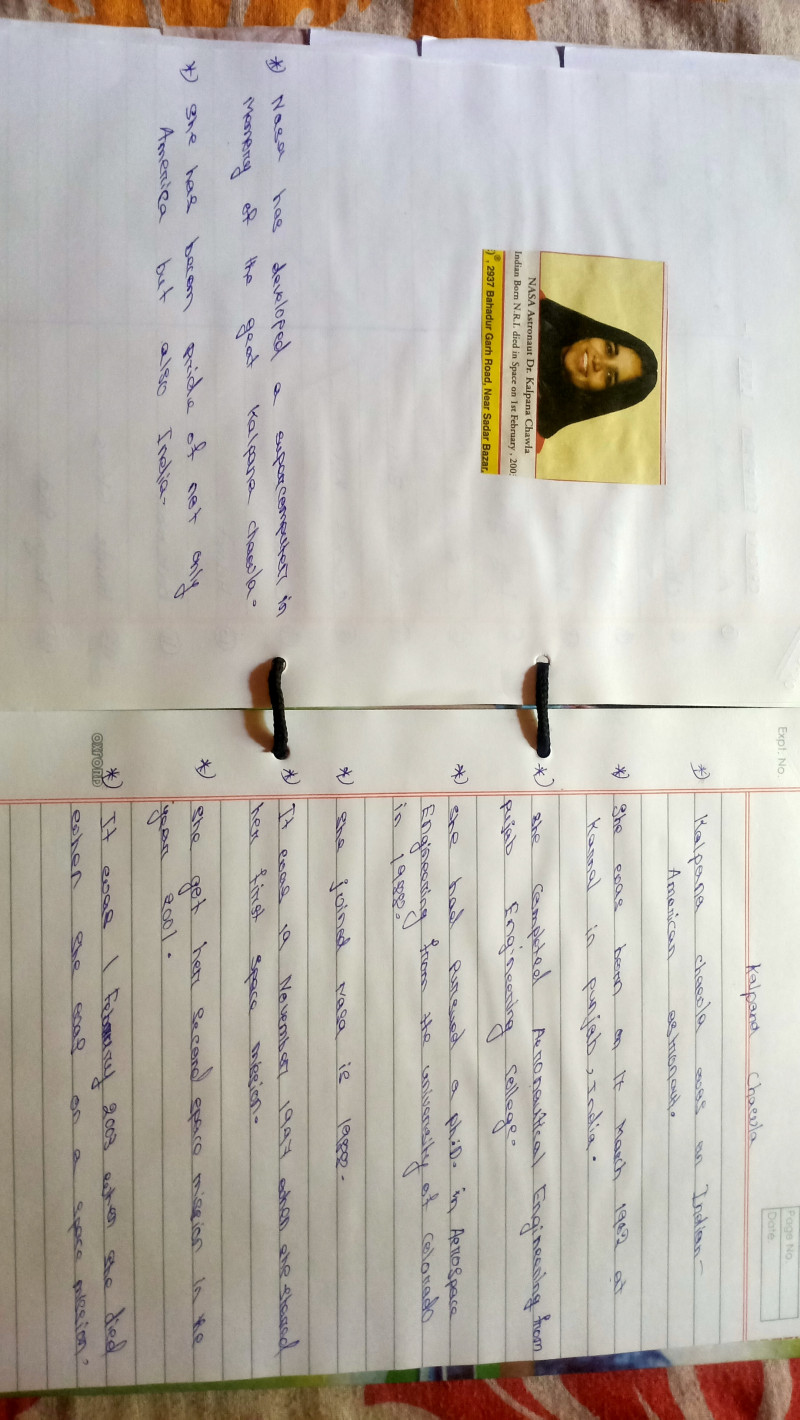 NASA Astronaut Dr. Kalpana Chawla
Indian Born N.R.I. died in Space on 1st February, 200
)®, 2937 Bahadur Garh Road, Near Sadar Bazar,
*) Nasa has developed a supercomputer in
memory of the geat Kalpana chawla.
*) She has becom pride of not only
America but also India.
Expt. No.
Page No.
Date
Kalpana Chawla
*) Kalpana chawla was an Indian-
American astronaut.
*) She was born on 17 March 1962 at
Karnal in punjab, India.
*) She completed Aeronautical Engineering from
pujab Engineering College.
*) She had pursued a ph.D. in Aerospace
Engineering from the university of Colorado
in 1988.
*) She joined nasa is 1988.
*) It was 19 November 1997 when she
her first space mission.
*) She get her second space mission in the
year 2001.
*) It was 1 2003 when she died
when she was on a space mission.
OXFORD